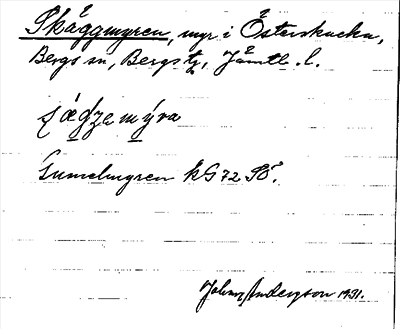 Skäggmyren, myr i Österskucku,
Bergs sn, Bergs tg, Jämtl. l.
myra
Gumelmyren kG 72 SÖ.
Johnz Anderzson 1931.